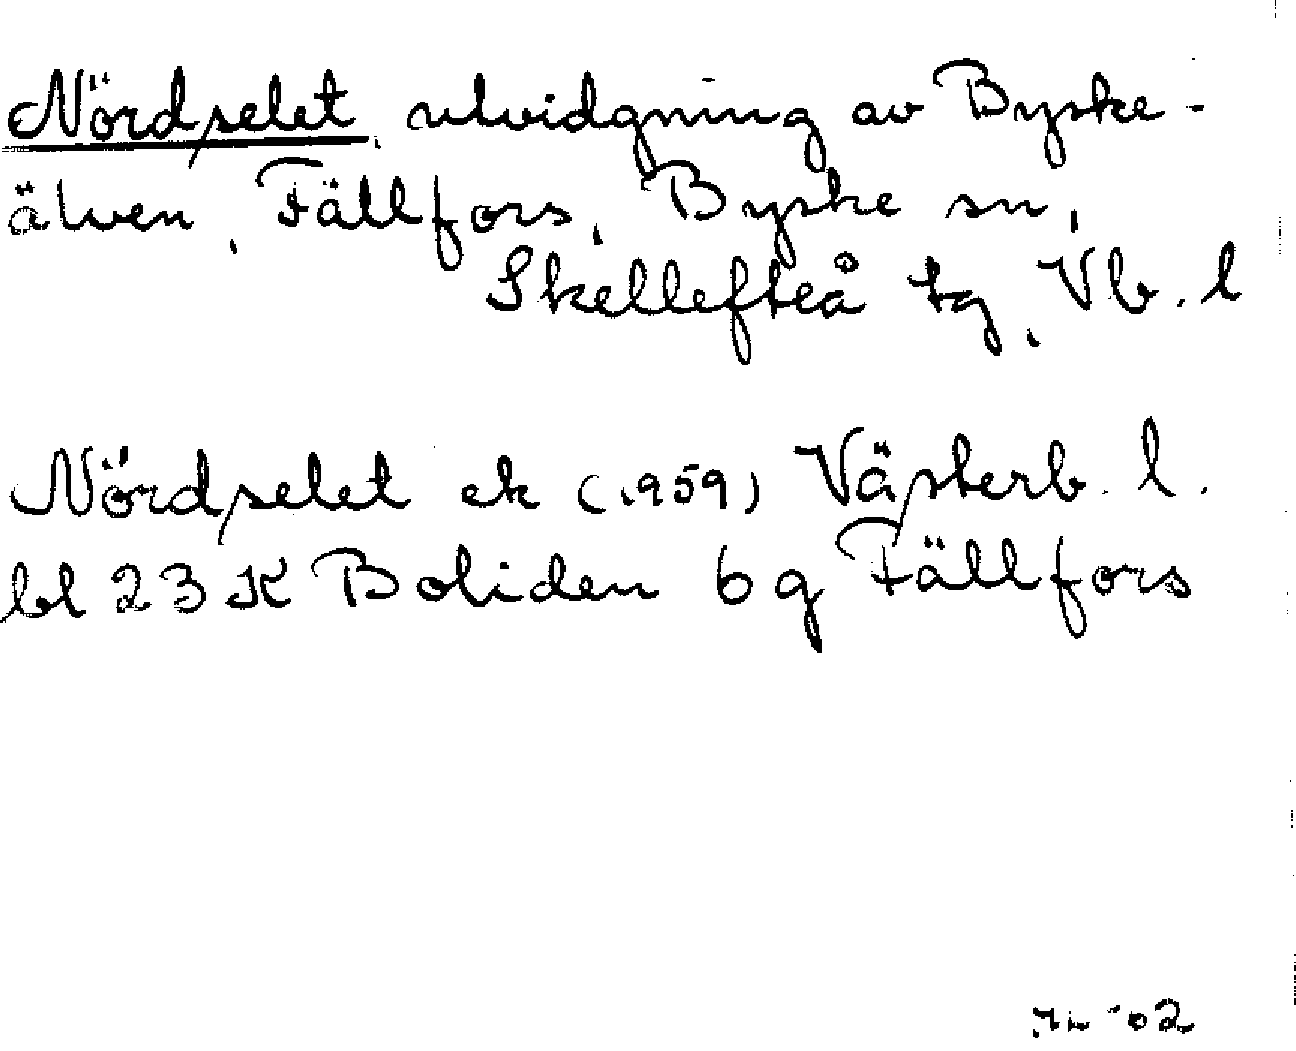 Nördselet, utvidgning av Byske-
älven, Fällfors, Byske sn,
Skellefteå tg, Vb. l
Nördselet ek (1959) Västerb. l.
bl 23 K Boliden 6 g Fällfors
'02